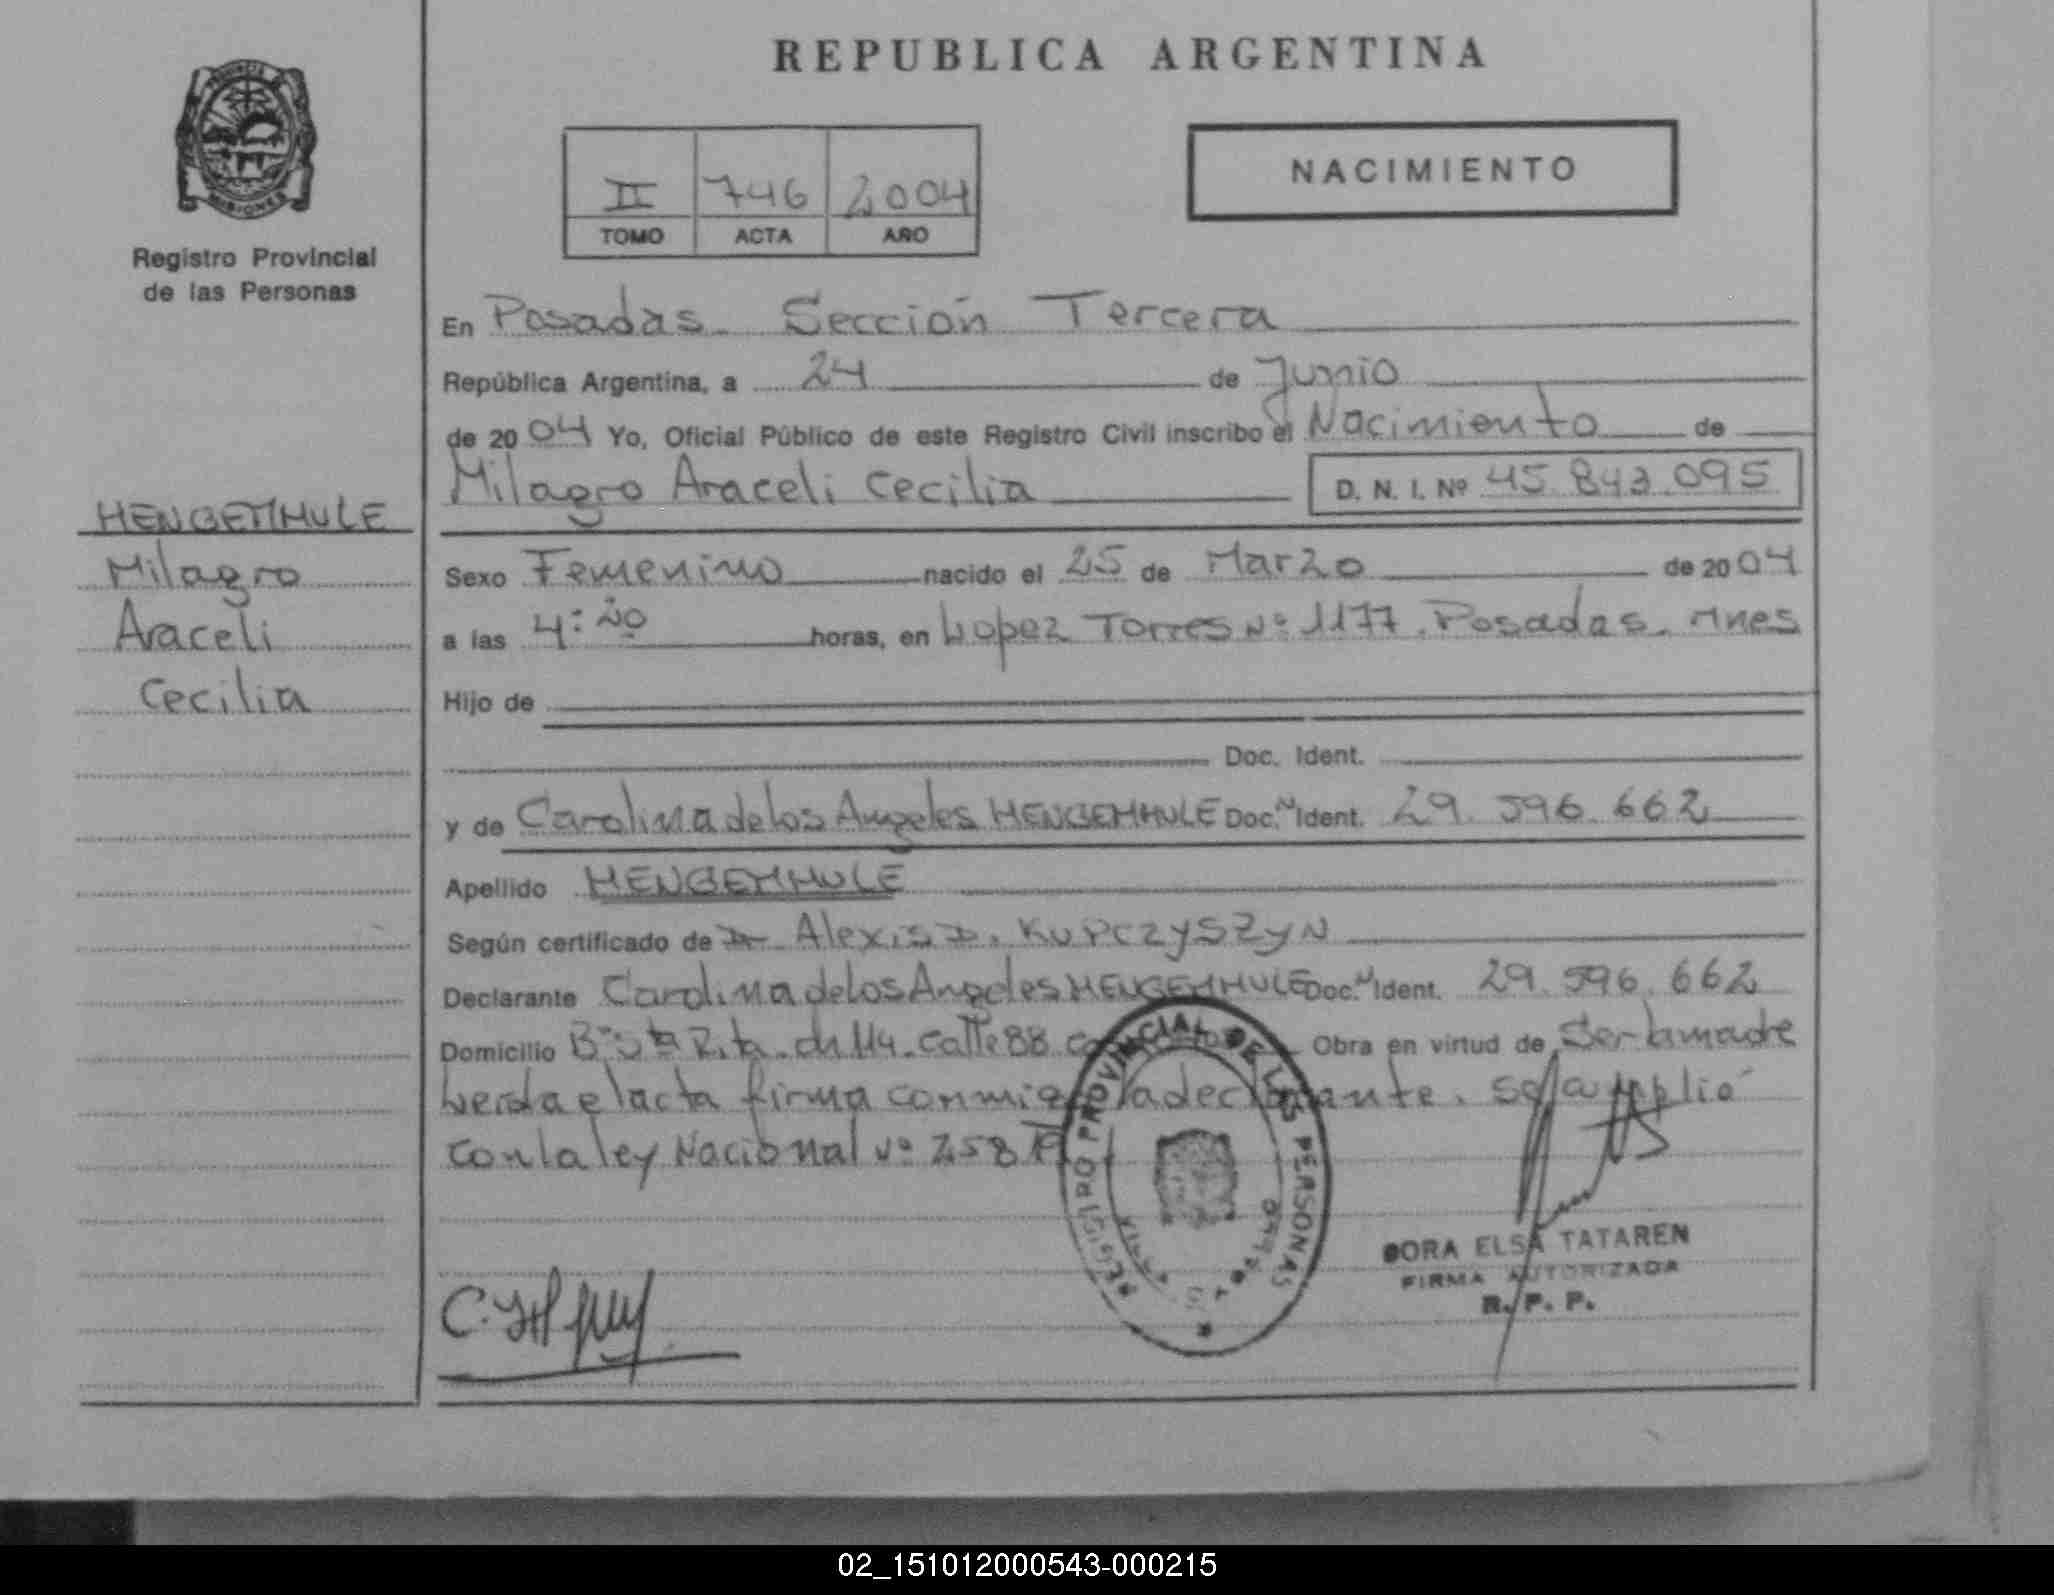 REPUBLICA ARGENTINA
PROVINCIA DE
MISIONES
Registro Provincial
de las Personas
II 746 2004
TOMO ACTA AÑO
NACIMIENTO
En Posadas. Sección Tercera
República Argentina, a 24 de Junio
de 2004 Yo, Oficial Público de este Registro Civil inscribo el Nacimiento de
Milagro Araceli Cecilia D. N. I. Nº 45.843.095
HENGEMHULE
Milagro
Araceli
Cecilia
Sexo Femenino nacido el 25 de Marzo de 2004
a las 4:20 horas, en Lopez Torres Nº 1177. Posadas. Mnes
Hijo de
Doc. Ident.
y de Carolina de los Angeles HENGEMHULE Doc. Ident. 29.596.662
Apellido HENGEMHULE
Según certificado de Dr Alexis D. KUPCZYSZYN
Declarante Carolina de los Angeles HENGEMHULE Doc. Ident. 29.596.662
Domicilio Bº Sta Rita. ch 114. calle 88 Obra en virtud de Ser la madre
Leida el acta firma conmigo la declarante. se cumplió
con la ley Nacional Nº 258
REGISTRO PROVINCIAL DE LAS PERSONAS
DORA ELSA TATAREN
FIRMA AUTORIZADA
R. P. P.
02_151012000543-000215